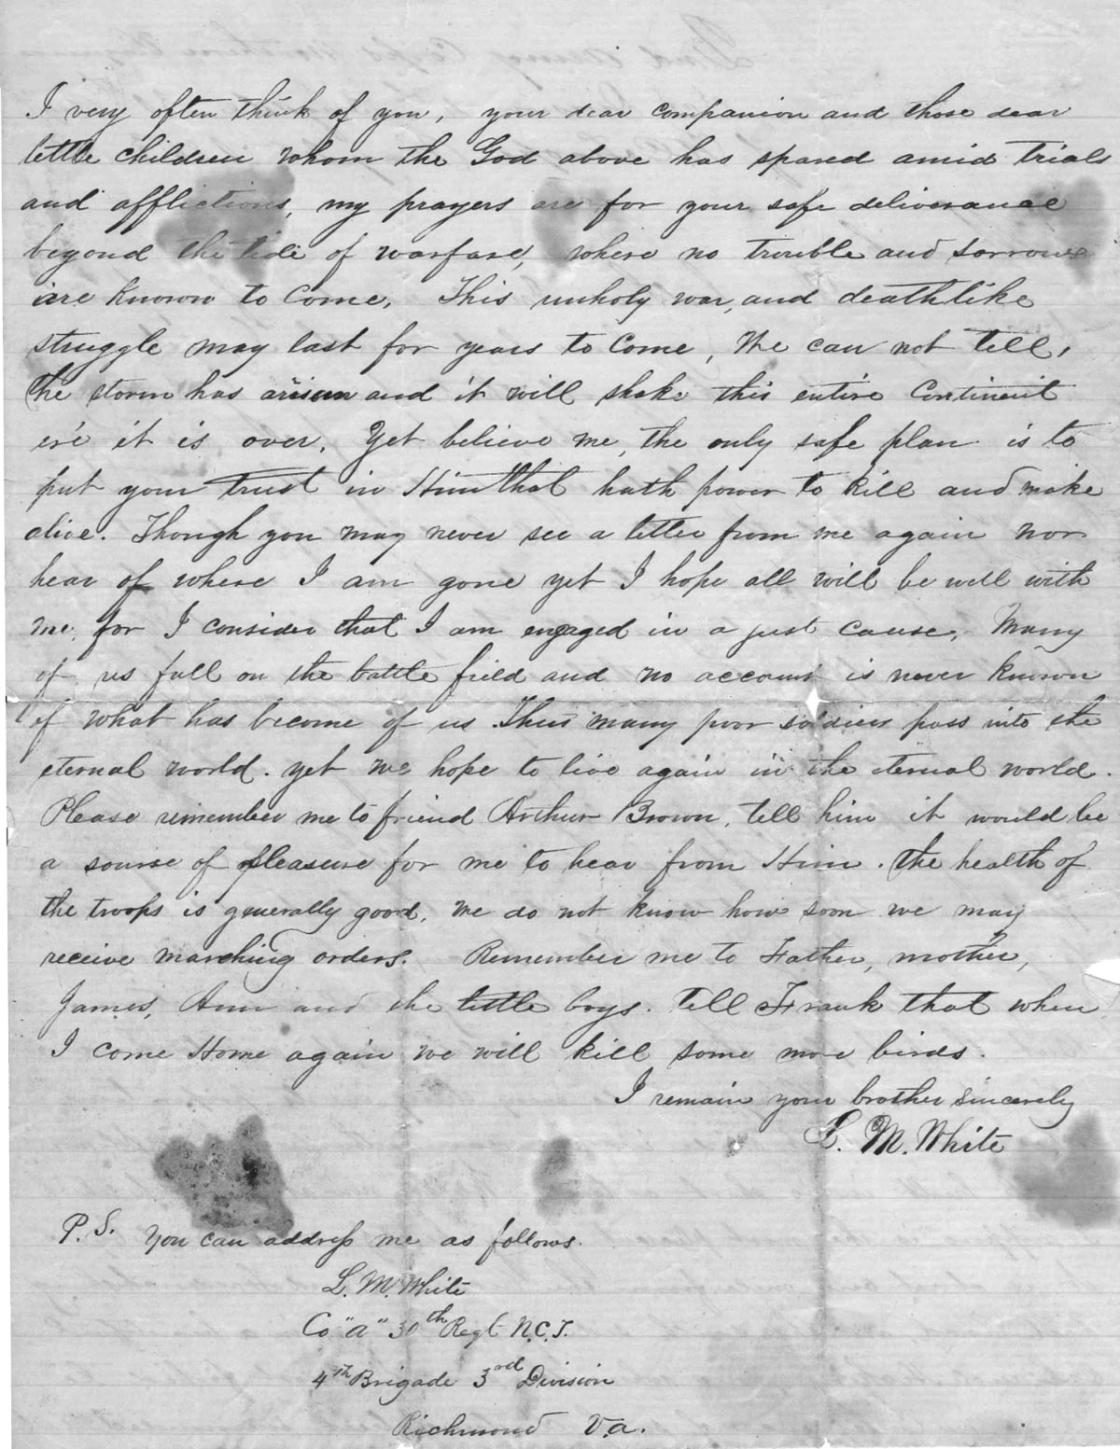 I very often think of you, your dear companion and those dear
little children whom the God above has spared amid trials
and afflictions, my prayers are for your safe deliverance
beyond the tide of warfare, where no trouble and sorrows
are known to Come. This unholy war, and deathlike
struggle may last for years to Come, We can not tell,
the storm has arisen and it will shake this entire Continent
er'e it is over. Yet believe me, the only safe plan is to
put your trust in Him that hath power to kill and make
alive. Though you may never see a letter from me again nor
hear of where I am gone yet I hope all will be well with
me, for I consider that I am engaged in a just cause. Many
of us fall on the battle field and no account is never known
of what has become of us Thus many poor soldiers pass into the
eternal world. yet we hope to live again in the eternal world.
Please remember me to friend Arthur Brown, tell him it would be
a sourse of pleasure for me to hear from Him. The health of
the troops is generally good. We do not know how soon we may
receive marching orders. Remember me to Father, mother,
James, Ann and the little boys. tell Frank that when
I come Home again we will kill some more birds.
I remain your brother sincerely
L. M. White
P.S. You can address me as follows.
L. M. White
Co "a" 30th Regt N.C.T.
4th Brigade 3rd Division
Richmond Va.